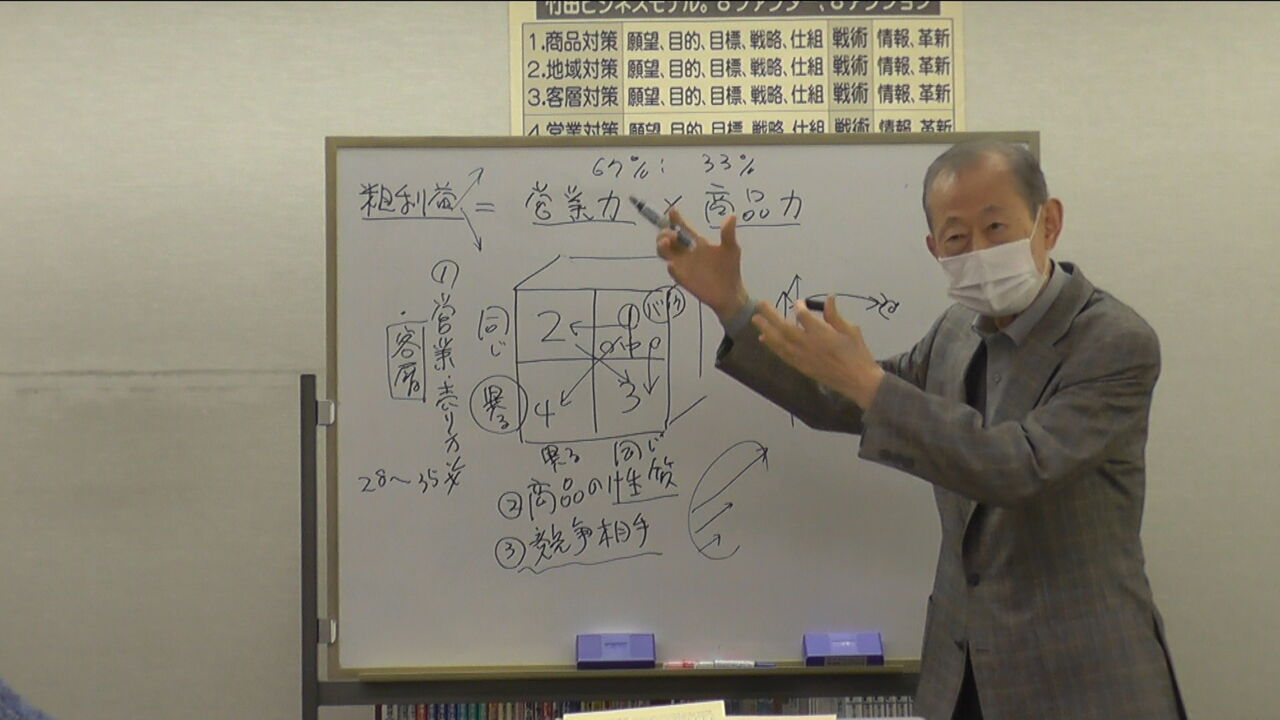 竹田ビジネスモデル。8ファクター、8アクション
1.商品対策 願望、目的、目標、戦略、仕組 戦術 情報、革新
2.地域対策 願望、目的、目標、戦略、仕組 戦術 情報、革新
3.客層対策 願望、目的、目標、戦略、仕組 戦術 情報、革新
4.営業対策 願望、目的、目標、戦略、仕組 戦術 情報、革新
67%: 33%
粗利益 = 営業力 × 商品力
①営業・売り方
客層
28〜35才
同じ
異る
2
①
4
3
異る 同じ
②商品の性質
③競争相手